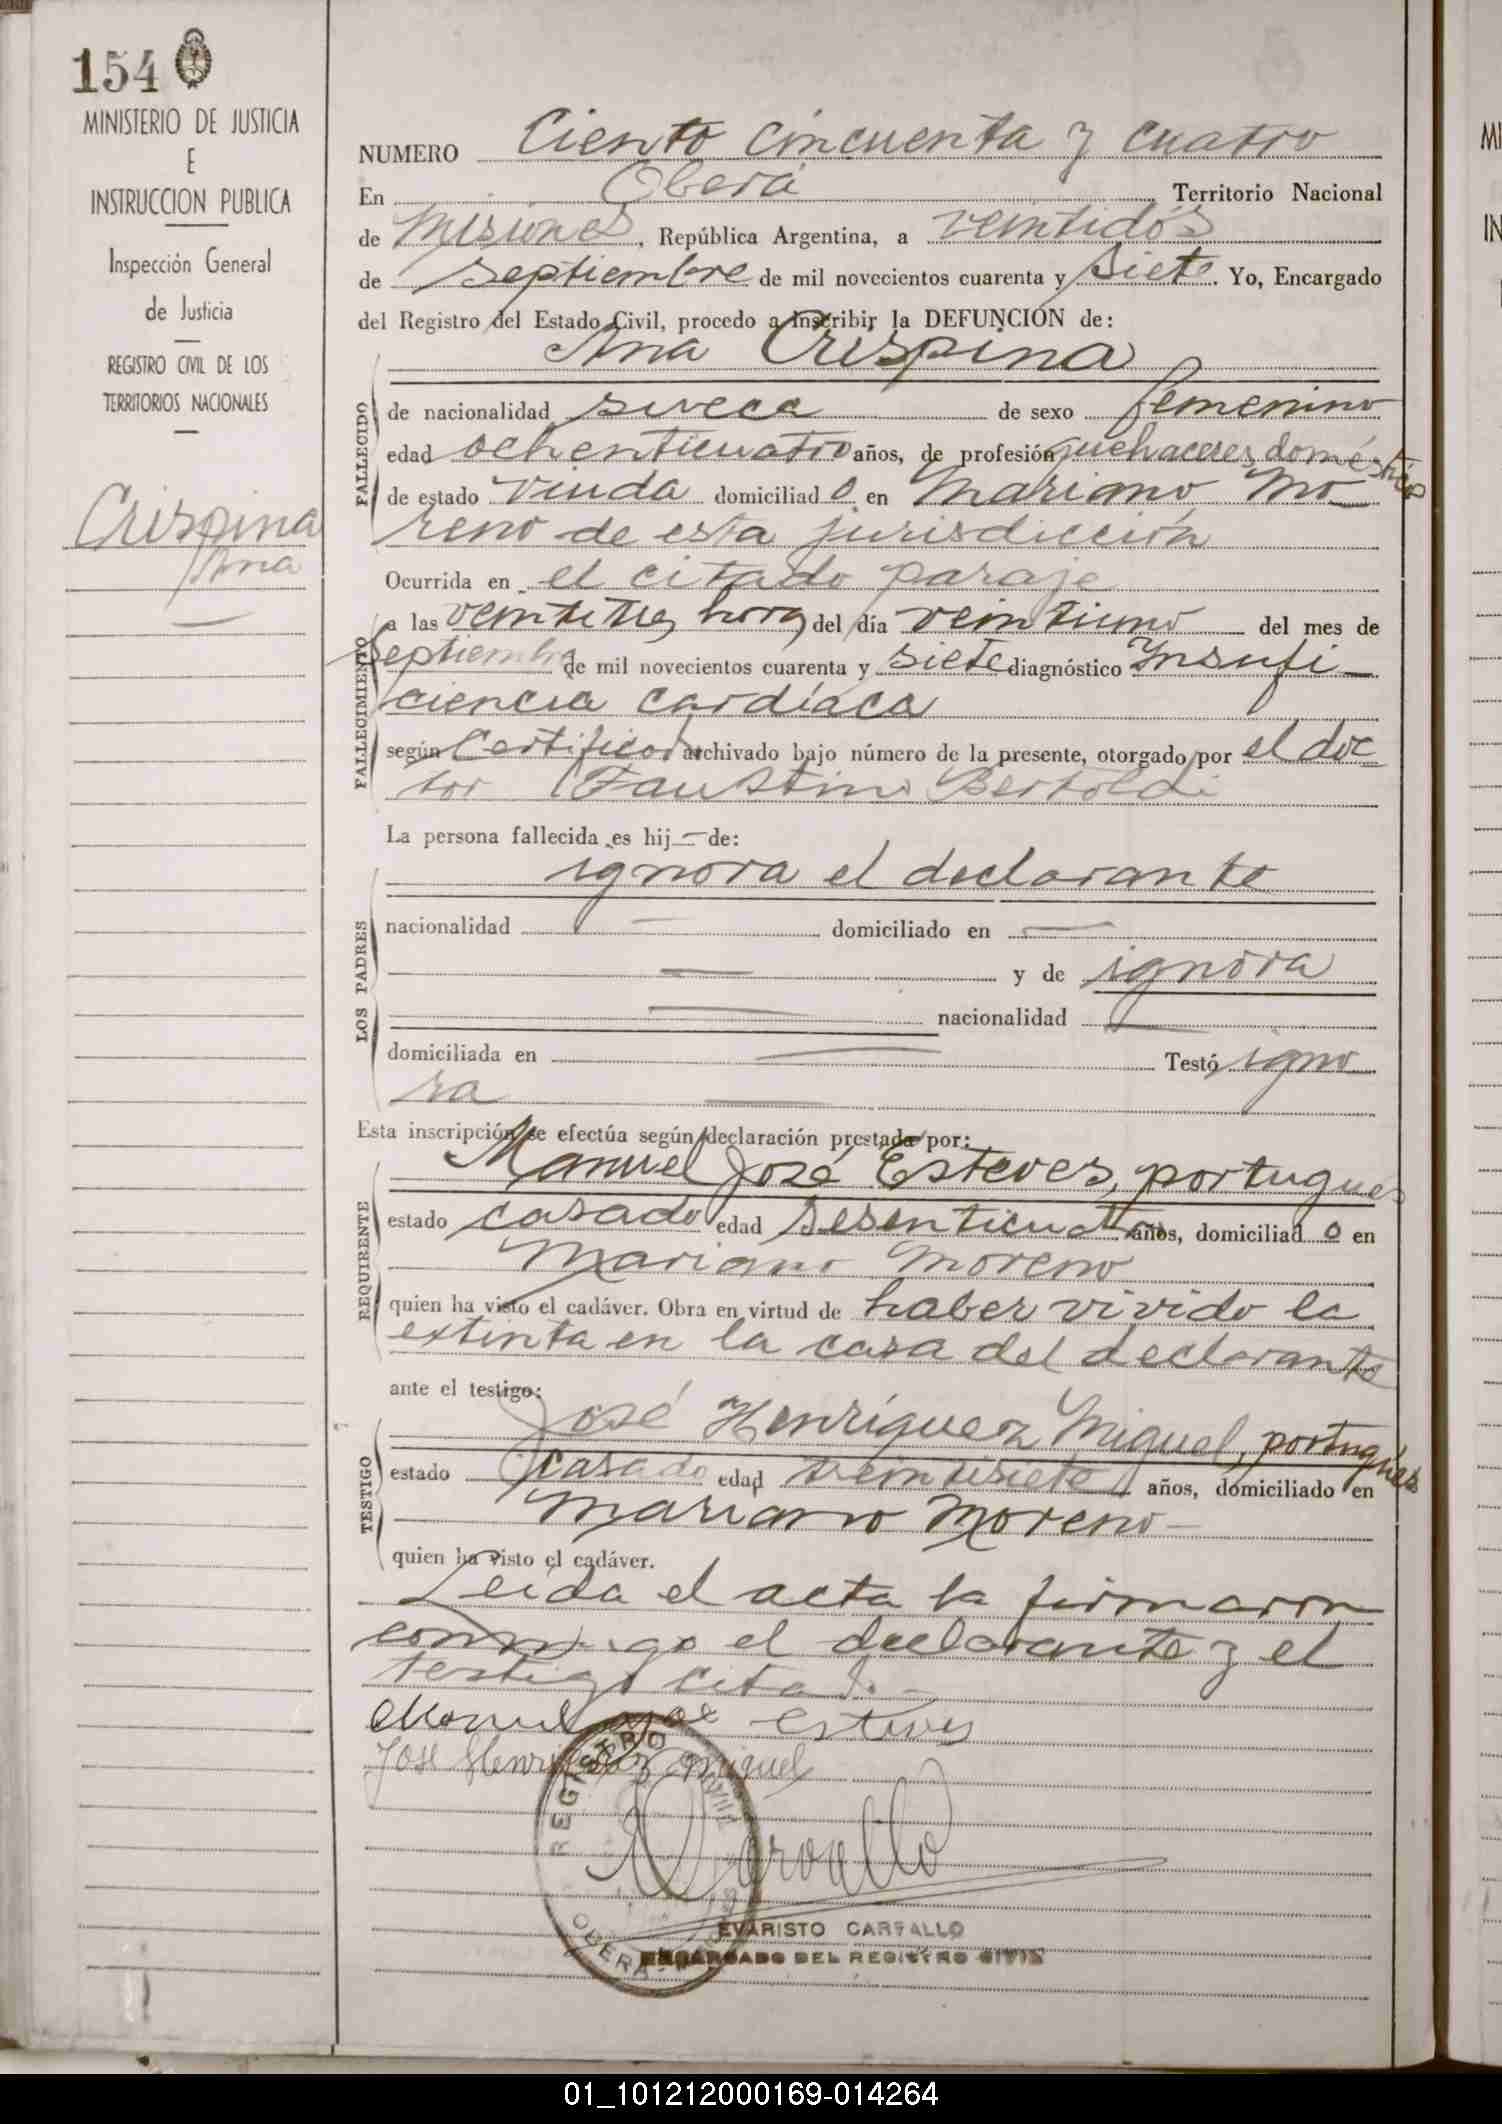 154
MINISTERIO DE JUSTICIA
E
INSTRUCCION PUBLICA
Inspección General
de Justicia
REGISTRO CIVIL DE LOS
TERRITORIOS NACIONALES
Crispina
Ana
NUMERO Ciento cincuenta y cuatro
En Oberá Territorio Nacional
de Misiones, República Argentina, a veintidós
de septiembre de mil novecientos cuarenta y siete. Yo, Encargado
del Registro del Estado Civil, procedo a inscribir la DEFUNCIÓN de:
Ana Crispina
FALLECIDO
de nacionalidad sueca de sexo femenino
edad ochenticuatro años, de profesión quehaceres domésticos
de estado viuda domiciliad o en Mariano Mo
reno de esta jurisdicción
FALLECIMIENTO
Ocurrida en el citado paraje
a las veintitres horas del día veintiuno del mes de
Septiembre de mil novecientos cuarenta y siete diagnóstico Insufi-
ciencia cardíaca
según Certificado archivado bajo número de la presente, otorgado por el doc
tor Faustino Bertoldi
La persona fallecida es hij— de:
LOS PADRES
ignora el declarante
nacionalidad — domiciliado en —
— y de ignora
— nacionalidad —
domiciliada en — Testó igno
ra —
Esta inscripción se efectúa según declaración prestada por:
REQUIRENTE
Manuel José Esteves, portugues
estado casado edad sesenticuatro años, domiciliad o en
Mariano Moreno
quien ha visto el cadáver. Obra en virtud de haber vivido la
extinta en la casa del declarante
ante el testigo:
TESTIGO
José Henríquez Miguel, portugues
estado casado edad treintisiete años, domiciliado en
Mariano Moreno-
quien ha visto el cadáver.
Leída el acta la firmaron
conmigo el declarante y el
testigo citado.-
Manuel José Esteves
José Henriquez Miguel
REGISTRO CIVIL
OBERA
Carvallo
EVARISTO CARVALLO
ENCARGADO DEL REGISTRO CIVIL
01_101212000169-014264